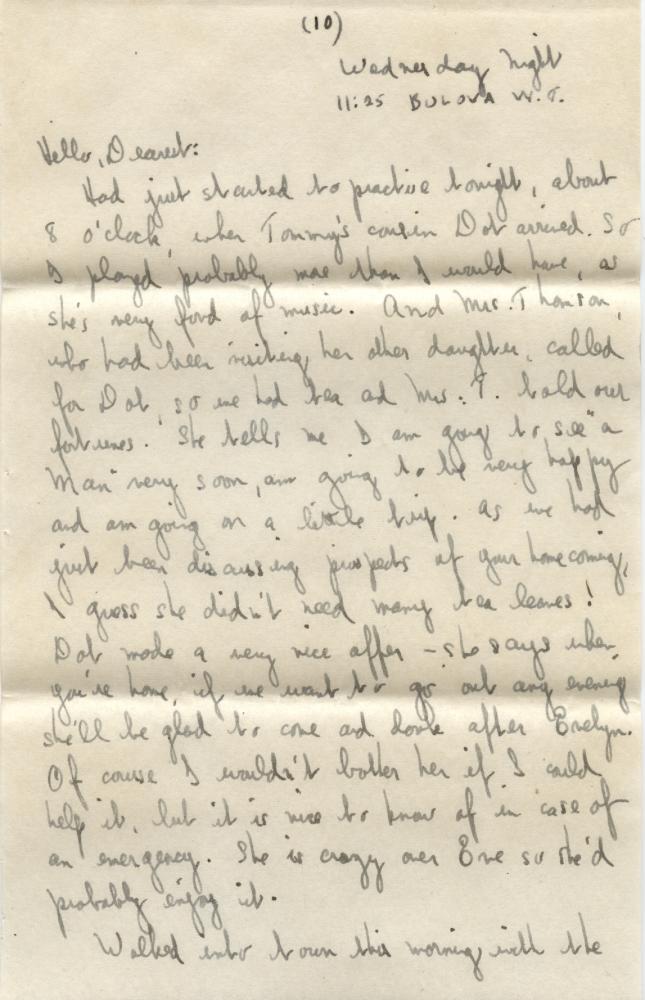 (10)
Wednesday Night
11:25 BULOVA W.T.
Hello, Dearest:
Had just started to practice tonight, about
8 o'clock, when Tommy's cousin Dot arrived. So
I played probably more than I would have, as
she's very fond of music. And Mrs. Thomson,
who had been visiting her other daughter, called
for Dot, so we had tea and Mrs. T. told our
fortunes. She tells me I am going to see "a
Man" very soon, am going to be very happy
and am going on a little trip. As we had
just been discussing prospects of your homecoming,
I guess she didn't need many tea leaves!
Dot made a very nice offer - she says when
you're home, if we want to go out any evening
she'll be glad to come and look after Evelyn.
Of course I wouldn't bother her if I could
help it, but it is nice to know of in case of
an emergency. She is crazy over Eve so she'd
probably enjoy it.
Walked into town this morning with the